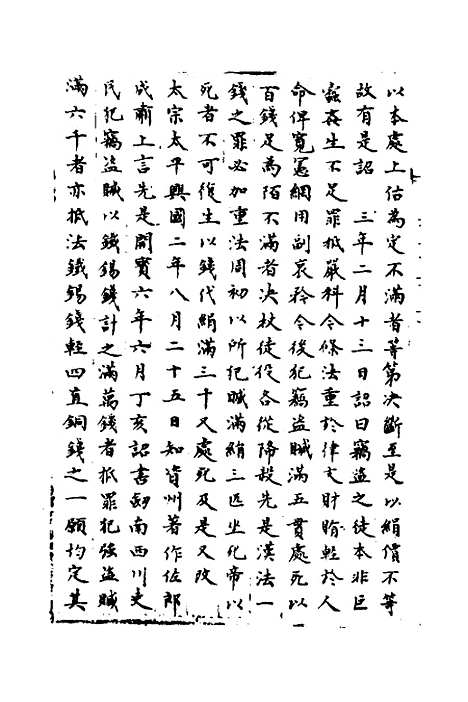 以本處上估為定不滿者等第決斷至是以絹價不等
故有是詔　三年二月十三日詔曰竊盜之徒本非巨
蠹姦生不足罪抵嚴科今條法重於律文財賄輕於人
命俾寬憲網用副哀矜今後犯竊盜贓滿五貫處死以
百錢足為陌不滿者決杖徒役各從降殺先是漢法一
錢之罪必加重法周初以所犯贓滿絹三匹坐死帝以
死者不可復生以錢代絹滿三十又處死及是又改
太宗太平興國二年八月二十五日知資州著作佐郎
成肅上言先是開寶六年六月丁亥詔書劒南西川吏
民犯竊盜贓以鐵錫錢計之滿萬錢者抵罪犯強盜贓
滿六千者亦抵法鐵錫錢輕四直銅錢之一願均定其